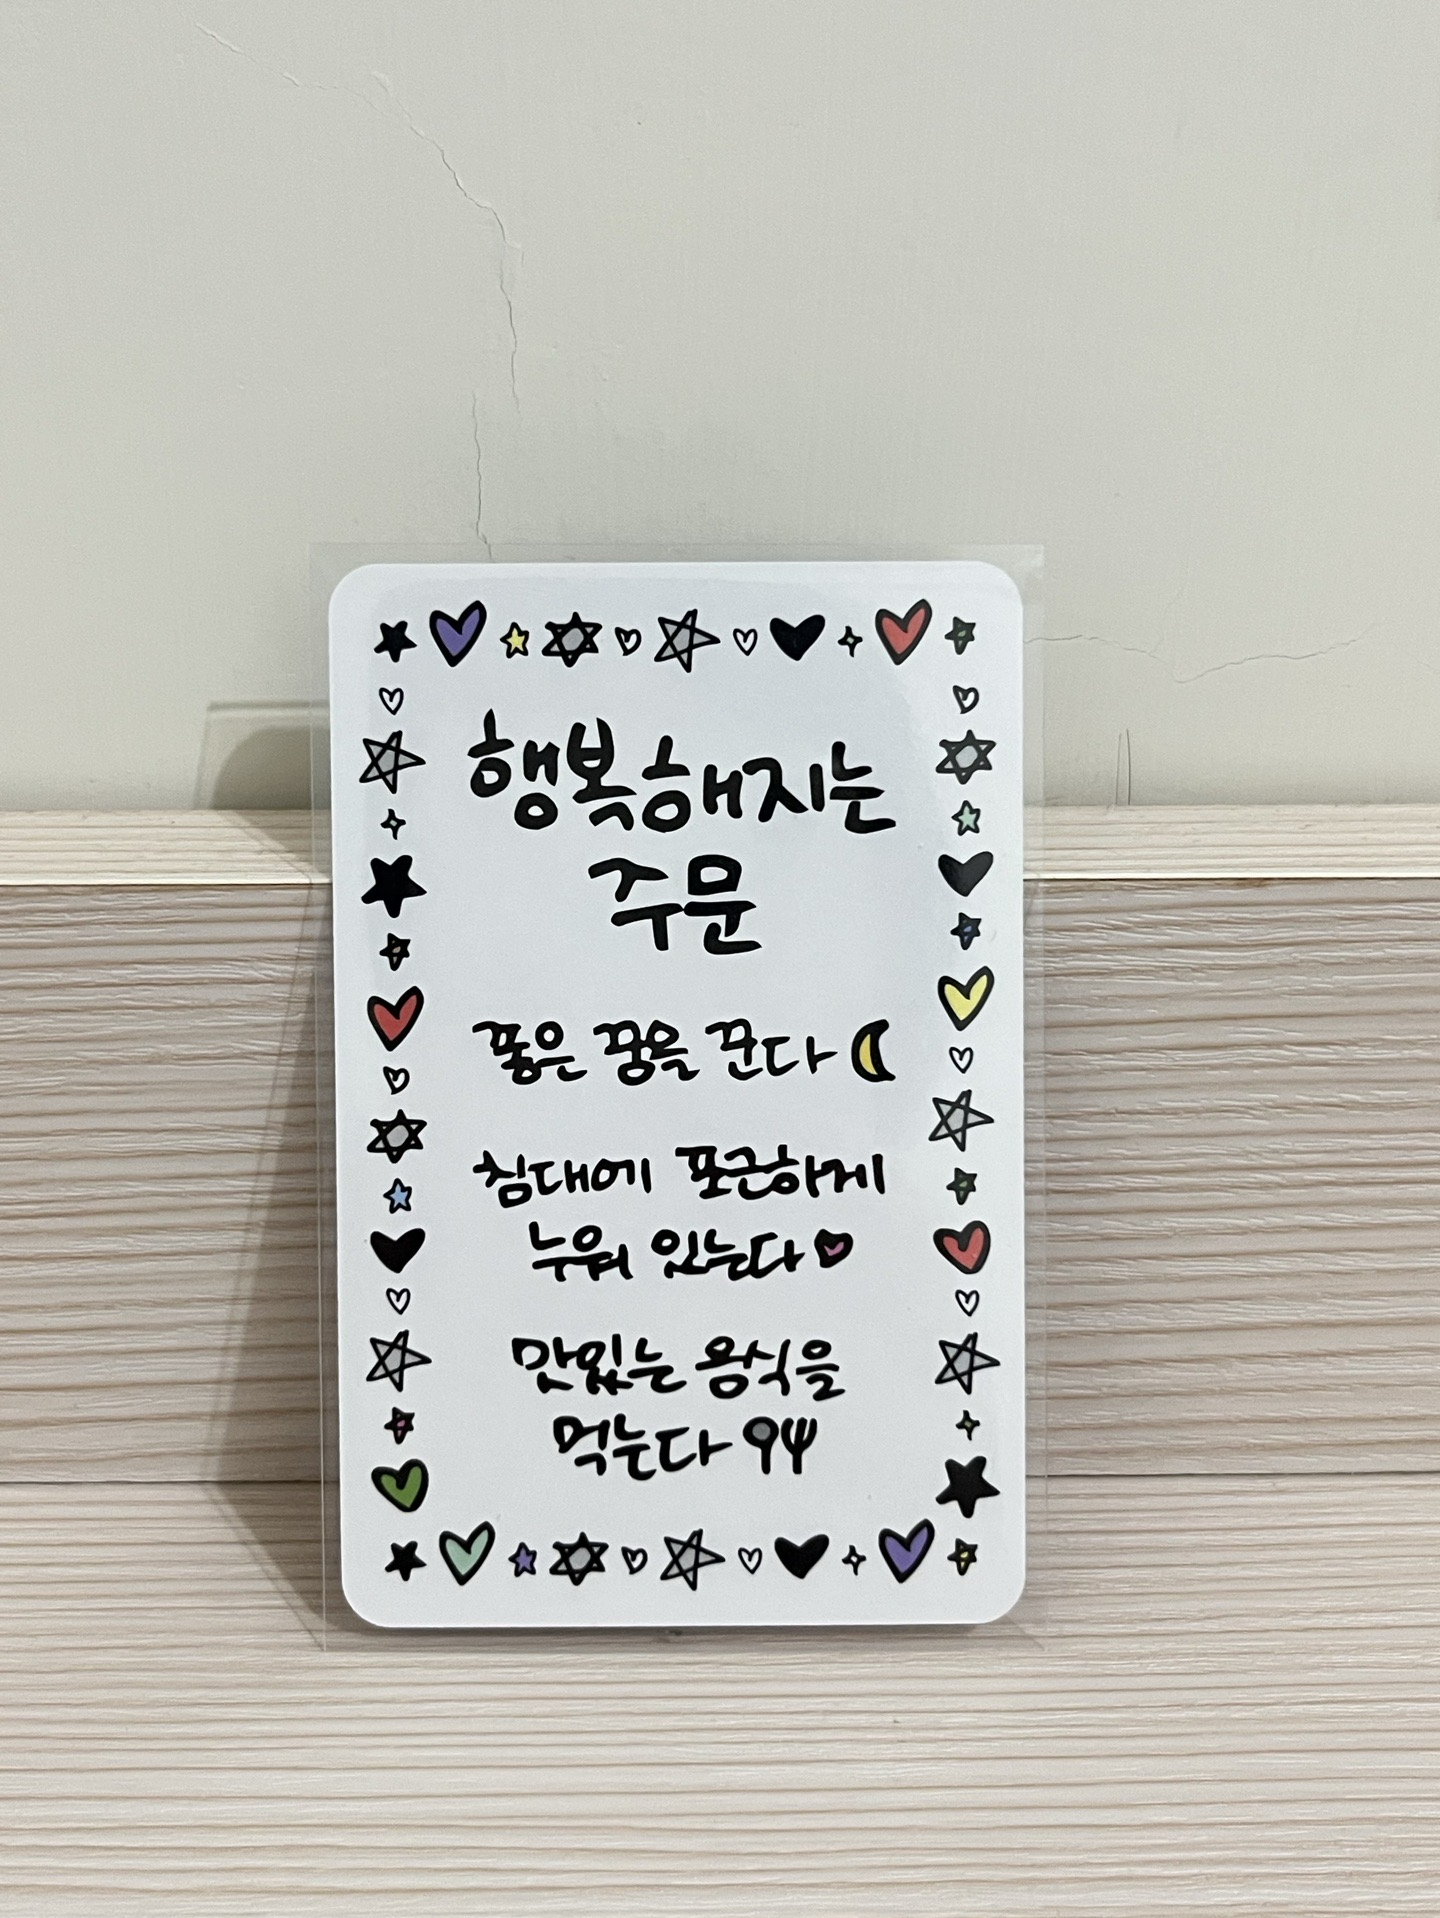 행복해지는
주문
좋은 꿈을 꾼다
침대에 포근하게
누워 있는다
맛있는 음식을
먹는다